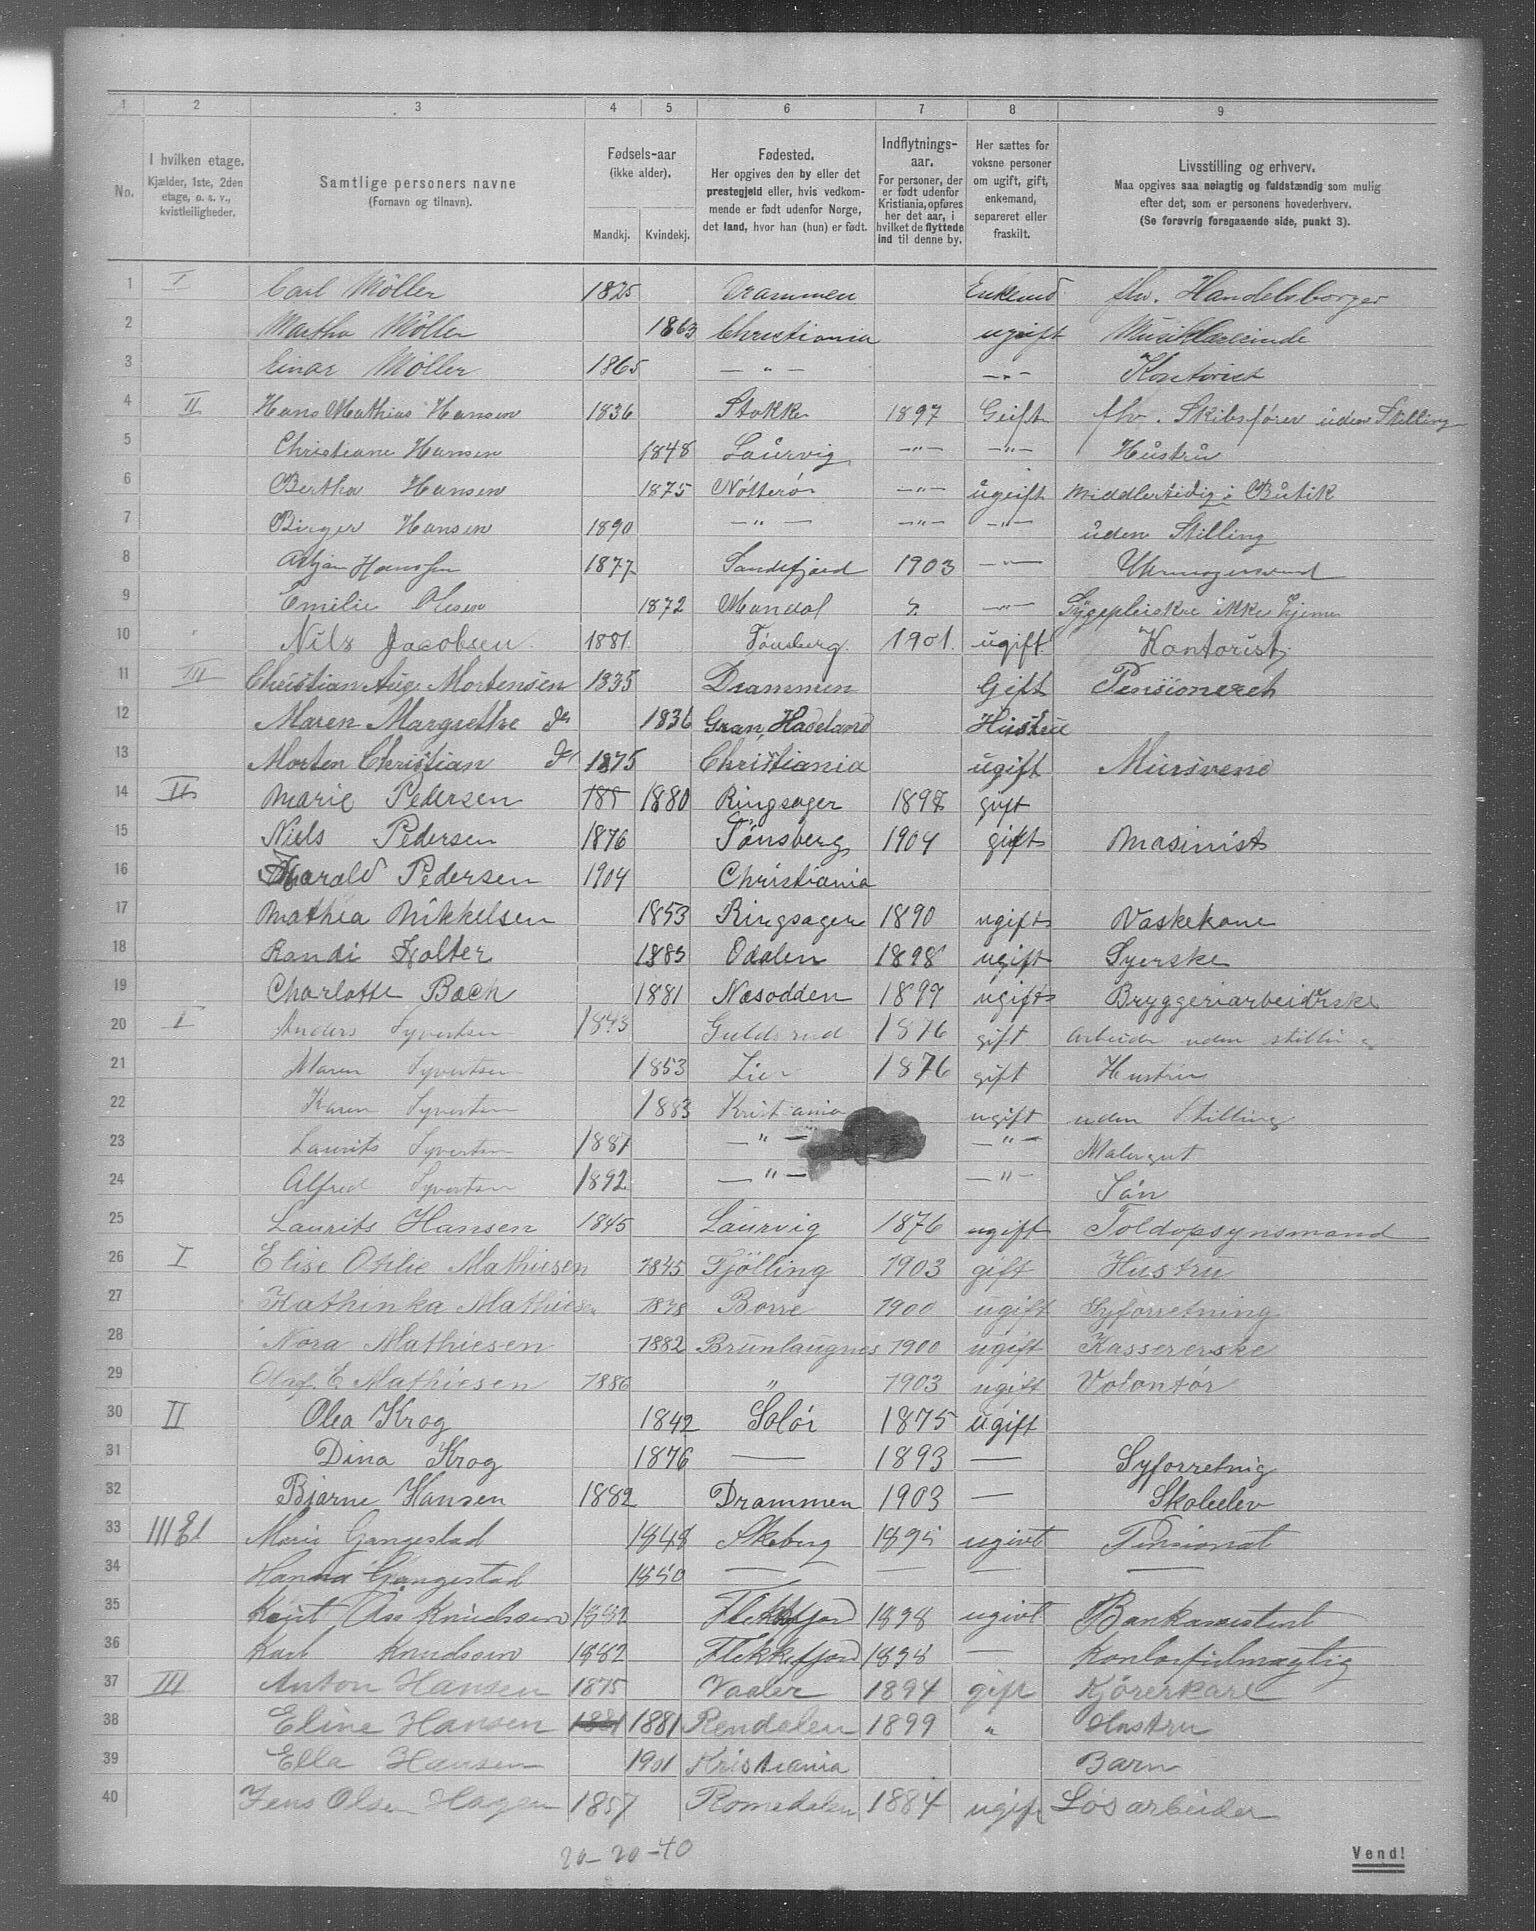 1 2 3 4 5 6 7 8 9
No.
I hvilken etage.
Kjælder, 1ste, 2den
etage, o. s. v.,
kvistleiligheder.
Samtlige personers navne
(Fornavn og tilnavn).
Fødsels-aar
(ikke alder).
Mandkj. Kvindekj.
Fødested.
Her opgives den by eller det
prestegjeld eller, hvis vedkom-
mende er født udenfor Norge,
det land, hvor han (hun) er født.
Indflytnings-
aar.
For personer, der
er født udenfor
Kristiania, opføres
her det aar, i
hvilket de flyttede
ind til denne by.
Her sættes for
voksne personer
om ugift, gift,
enkemand,
separeret eller
fraskilt.
Livsstilling og erhverv.
Maa opgives saa nøiagtig og fuldstændig som mulig
efter det, som er personens hovederhverv.
(Se forøvrig foregaaende side, punkt 3).
1 I Carl Möller 1825 Drammen Enkemd fhv. Handelsborger
2 Martha Möller 1863 Christiania ugift Musiklærerinde
3 Einar Möller 1865 — " — — " — Kontorist
4 II Hans Mathias Hansen 1836 Stokke 1897 Gift fhv. Skibsfører uden Stilling
5 Christiane Hansen 1848 Laurvig — " — — " — Hustru
6 Bertha Hansen 1875 Nötterö — " — ugift Middlertidig i Butik
7 Birger Hansen 1890 — " — — " — — " — uden Stilling
8 1877 Sandefjord 1903 — " —
9 Emilie Olesen 1872 Mandal — " — Sygepleiske ikke hjemme
10 Nils Jacobsen 1881 Tønsberg 1901 ugift Kontorist
11 III Christian Aug. Mortensen 1835 Drammen Gift Pensioneret
12 Maren Margrethe do 1836 Gran, Hadeland Hustrue
13 Morten Christian do 1875 Christiania ugift Mursvend
14 II Marie Pedersen 188 1880 Ringsager 1898 gift
15 Niels Pedersen 1876 Tönsberg 1904 gift Masinist
16 Harald Pedersen 1904 Christiania
17 Mathea Mikkelsen 1853 Ringsager 1890 ugift Vaskekone
18 Randi Holter 1883 Odalen 1898 ugift Syerske
19 Charlotte Bach 1881 Næsodden 1899 ugift Bryggeriarbeiderske
20 I Anders Syvertsen 1843 1876 gift Arbeider uden stilling
21 Maren Syvertsen 1853 Lier 1876 gift Hustru
22 Karen Syvertsen 1883 Kristiania ugift uden Stilling
23 Laurits Syvertsen 1887 — " — — " — Malergut
24 Alfred Syvertsen 1892 — " — — " — Sön
25 Laurits Hansen 1845 Laurvig 1876 ugift Toldopsynsmand
26 I Elise Othlie Mathiesen 1845 Tjölling 1903 gift Hustru
27 Kathinka Mathiesen 1878 Borre 1900 ugift Syforretning
28 Nora Mathiesen 1882 Brunlaugnes 1900 ugift Kassererske
29 Olaf E Mathiesen 1886 " 1903 ugift Volontör
30 II Olea Krog 1842 Solör 1875 ugift
31 Dina Krog 1876 — 1893 — Syforretnig
32 Bjarne Hansen 1882 Drammen 1903 — Skoleelev
33 III Et Marie Gangestad 1848 Skeberg 1895 ugivt Pensionat
34 Hanna Gangestad 1850 — — — —
35 Knut Aas Knudsen 1882 Flekkefjord 1898 ugivt Bankassistent
36 Karl Knudsen 1882 Flekkefjord 1898 — Kontorfulmægtig
37 III Anton Hansen 1875 Vaaler 1894 gift Kjörerkarl
38 Eline Hansen 1881 1881 Rendalen 1899 " Hustru
39 Ella Hansen 1901 Kristiania Barn
40 Jens Olsen Hagen 1857 Romedalen 1884 ugift Løsarbeider
20 – 20 – 40
Vend!